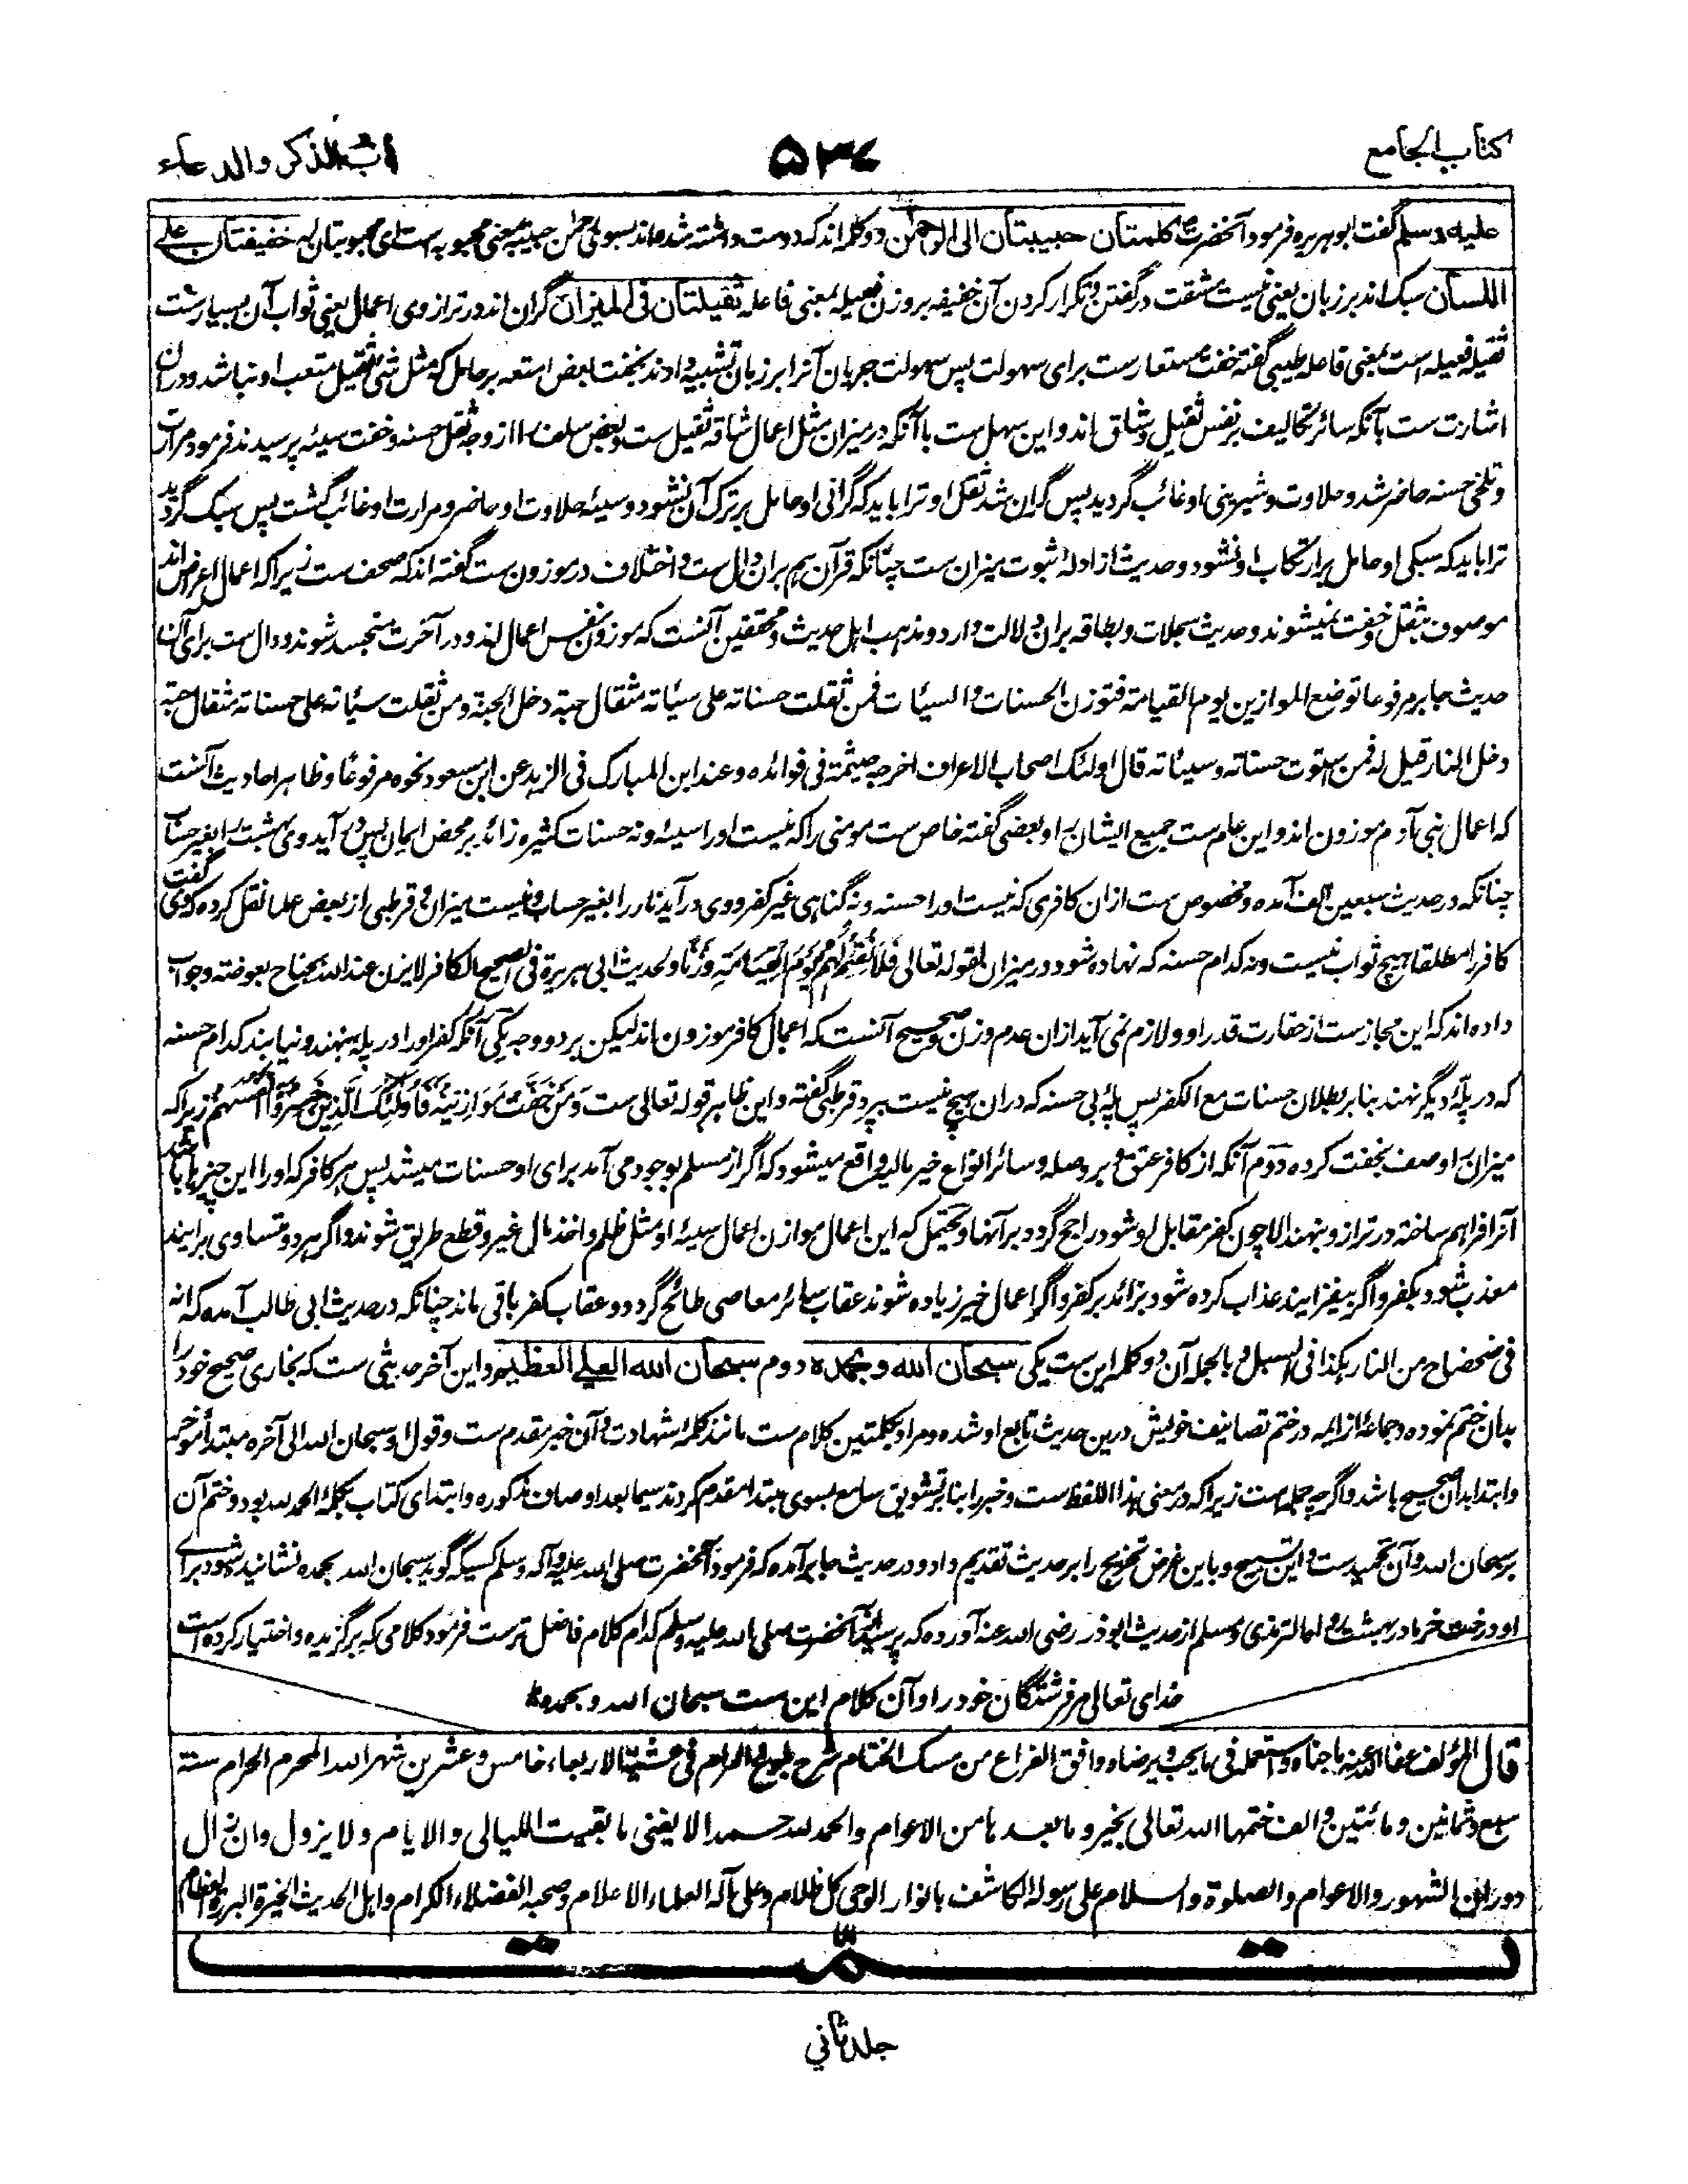 کتاب الجامع
۵۳۴
باب الذکر والدعاء
علیه وسلم گفت ابوهریره فرمود آنحضرت کلمتان حبیبتان الی الرحمن دو کلمه اند که دوست داشته شده اند بسوی رحمن حبیبه بمعنی محبوبه است ای محبوبتان له خفیفتان علی
اللسان سبک اند بر زبان یعنی نیست مشقت در گفتن و تکرار کردن آن خفیفه بروزن فعیله بمعنی فاعله ثقیلتان فی المیزان گران اند در ترازوی اعمال یعنی ثواب آن بسیارست
ثقیله فعیله است بمعنی فاعله طیبی گفته خفت مستعارست برای سهولت پس سهولت جریان آنرا بر زبان تشبیه دادند بخفت بعض امتعه بر حامل که مثل شی ثقیل متعب او نباشد و دران
اشارت ست بآنکه سائر تکالیف بر نفس ثقیل و شاق اند و این سهل ست با آنکه در میزان مثل اعمال شاقه ثقیل ست و بعض سلف را از وجه ثقل حسنه و خفت سیئه پرسیدند فرمود مرارت
و تلخی حسنه حاضر شد و حلاوت و شیرینی او غائب گردید پس گران شد ثقل او ترا باید که گرانی او حامل بر ترک آن نشود و سیئه حلاوت او حاضر و مرارت او غائب گشت پس سبک گردید
ترا باید که سبکی او حامل بر ارتکاب او نشود و حدیث از ادلهٔ ثبوت میزان ست چنانکه قرآن هم بران دال ست و اختلاف در موزون ست گفته اند که صحف ست زیرا که اعمال اعراض اند
موصوف بثقل و خفت نمیشوند و حدیث سجلات و بطاقه بران دلالت دارد و مذهب اهل حدیث و محققین آنست که موزون نفس اعمال اند و در آخرت متجسد شوند و دال ست برای آن
حدیث جابر مرفوعا توضع الموازین یوم القیامة فتوزن الحسنات والسیئات فمن ثقلت حسناته علی سیئاته مثقال حبة دخل الجنة ومن ثقلت سیئاته علی حسناته مثقال حبة
دخل النار قیل له فمن استوت حسناته وسیئاته قال اولئک اصحاب الاعراف اخرجه خیثمة فی فوائده وعند ابن المبارک فی الزهد عن ابن مسعود نحوه مرفوعا و ظاهر احادیث آنست
که اعمال بنی آدم موزون اند و این عام ست جمیع ایشان را و بعضی گفته خاص ست مومنی را که نیست او را سیئه و نه حسنات کثیره زائد بر محض ایمان پس در آید وی بهشت را بغیر حساب
چنانکه در حدیث سبعین الف آمده و مخصوص ست ازان کافری که نیست او را حسنه و نه گناهی غیر کفر و وی در آید نار را بغیر حساب و نیست میزان و قرطبی از بعض علما نقل کرده که وی گفت
کافر را مطلقا هیچ ثواب نیست و نه کدام حسنه که نهاده شود در میزان لقوله تعالی فَلَا نُقِيمُ لَهُمْ يَوْمَ الْقِيَامَةِ وَزْنًا ولحدیث ابی هریرة فی الصحیح الکافر لا یزن عند الله جناح بعوضة و جواب
داده اند که این مجازست از حقارت قدر او و لازم نمی آید ازان عدم وزن و صحیح آنست که اعمال کافر موزون اند لیکن بر دو وجه یکی آنکه کفر او را در پله بنهند و نیابند کدام حسنه
که در پلهٔ دیگر نهند بنا بر بطلان حسنات مع الکفر پس پلهٔ بی حسنه که دران هیچ نیست بپرد قرطبی گفته و این ظاهر قوله تعالی ست وَمَنْ خَفَّتْ مَوَازِينُهُ فَأُولَٰئِكَ الَّذِينَ خَسِرُوا أَنْفُسَهُمْ زیرا که
میزان را وصف بخفت کرده دوم آنکه از کافر عتق و بر و صله و سائر انواع خیر مالیه واقع میشود که اگر از مسلم بوجود می آمد برای او حسنات میشد پس هر کافر که او را این چیزها باشد
آنرا فراهم ساخته در ترازو بنهند الا چون کفر مقابل او شود راجح گردد بر آنها و محتمل که این اعمال موازن اعمال سیئه او مثل ظلم و اخذ مال غیر و قطع طریق شوند و اگر هر دو متساوی برآیند
معذب شود بکفر و اگر بیفزایند عذاب کرده شود بزائد بر کفر و اگر اعمال خیر زیاده شوند عقاب سائر معاصی طائح گردد و عقاب کفر باقی ماند چنانکه در حدیث ابی طالب آمده که انه
فی ضحضاح من النار هکذا فی السبل و بالجمله آن دو کلمه این ست یکی سبحان الله وبحمده دوم سبحان الله العلي العظیم و این آخر حدیثی ست که بخاری صحیح خود را
بدان ختم نموده و جماعهٔ از ایمه در ختم تصانیف خویش درین حدیث تابع او شده و مراد بکلمتین کلام ست مانند کلمهٔ شهادت و آن خبر مقدم ست و قول او سبحان الله الی آخره مبتدا مؤخر
و ابتدا بدان صحیح باشد و اگرچه جمله ست زیرا که در معنی هذا اللفظ ست و خبر را بنا بر تشویق سامع بسوی مبتدا مقدم کردند سیما بعد اوصاف مذکوره و ابتدای کتاب بکلمهٔ الحمد لله بود و ختم آن
بر سبحان الله و آن تحمید ست و این تسبیح و باین غرض تخریج را بر حدیث تقدیم داد و در حدیث جابر آمده که فرمود آنحضرت صلی الله علیه وآله وسلم کسیکه گوید سبحان الله بحمده نشانیده شود برای
او درخت خرما در بهشت رواه الترمذی و مسلم از حدیث ابوذر رضی الله عنه آورده که پرسیده شد آنحضرت صلی الله علیه وسلم کدام کلام فاضل ترست فرمود کلامی که برگزیده و اختیار کرده است
خدای تعالی مر فرشتگان خود را و آن کلام این ست سبحان الله وبحمده
قال المؤلف عفا الله عنه ما جناه واستعمله فی ما یحب ویرضاه وافق الفراغ من مسک الختام شرح بلوغ المرام فی عشیة الاربعاء خامس وعشرین شهر الله المحرم الحرام سنة
سبع وثمانین ومائتین والف ختمها الله تعالی بخیر وما بعدها من الاعوام والحمد لله حمدا لا یفنی ما بقیت اللیالی والایام ولا یزول وان زال
دوران الشهور والاعوام والصلوة والسلام علی رسوله الکاشف بانوار الوحی کل ظلام وعلی آله العلماء الاعلام وصحبه الفضلاء الکرام واهل الحدیث الخیرة البررة العظام
تمت
جلد ثانی